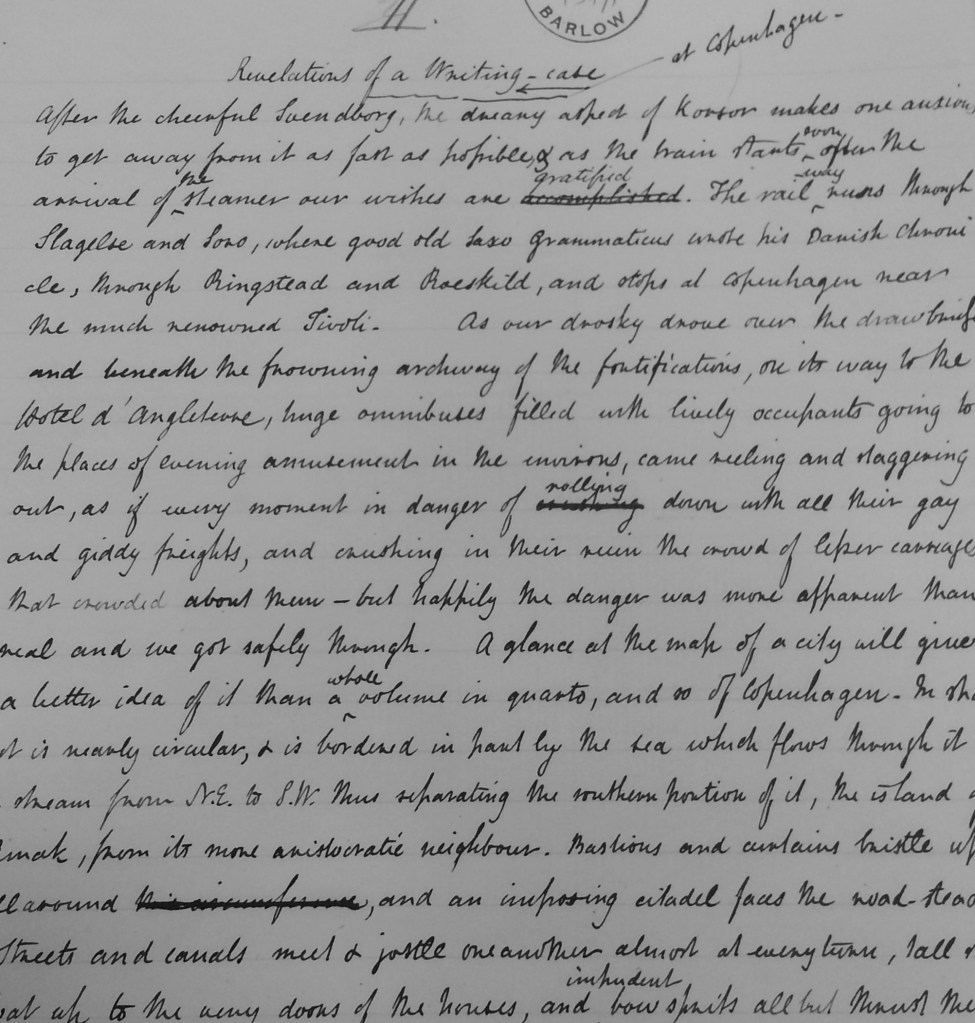 II.
BARLOW
at Copenhagen -
Revelations of a Writing-case
After the cheerful Svendborg, the dreary aspect of Korsor makes one anxious
to get away from it as fast as possible, & as the train starts soon after the
arrival of the steamer our wishes are accomplished gratified. The railway runs through
Slagelse and Soro, where good old Saxo Grammaticus wrote his Danish Chroni
cle, through Ringstead and Roeskild, and stops at Copenhagen near
the much renowned Tivoli. As our drosky drove over the drawbridge
and beneath the frowning archway of the fortifications, on its way to the
Hotel d'Angleterre, huge omnibuses filled with lively occupants going to
the places of evening amusement in the environs, came reeling and staggering
out, as if every moment in danger of crushing rolling down with all their gay
and giddy freights, and crushing in their ruin the crowd of lesser carriages
that crowded about them - but happily the danger was more apparent than
real and we got safely through. A glance at the map of a city will give
a better idea of it than a whole volume in quarto, and so of Copenhagen - In sha
it is nearly circular, & is bordered in part by the sea which flows through it
stream from N.E. to S.W. thus separating the southern portion of it, the island o
mak, from its more aristocratic neighbour. Bastions and curtains bristle up
all around the circumference, and an imposing citadel faces the road-stead
Streets and canals meet & jostle one another almost at every turn, tall
oat up to the very doors of the houses, and impudent bowsprits all but thrust the